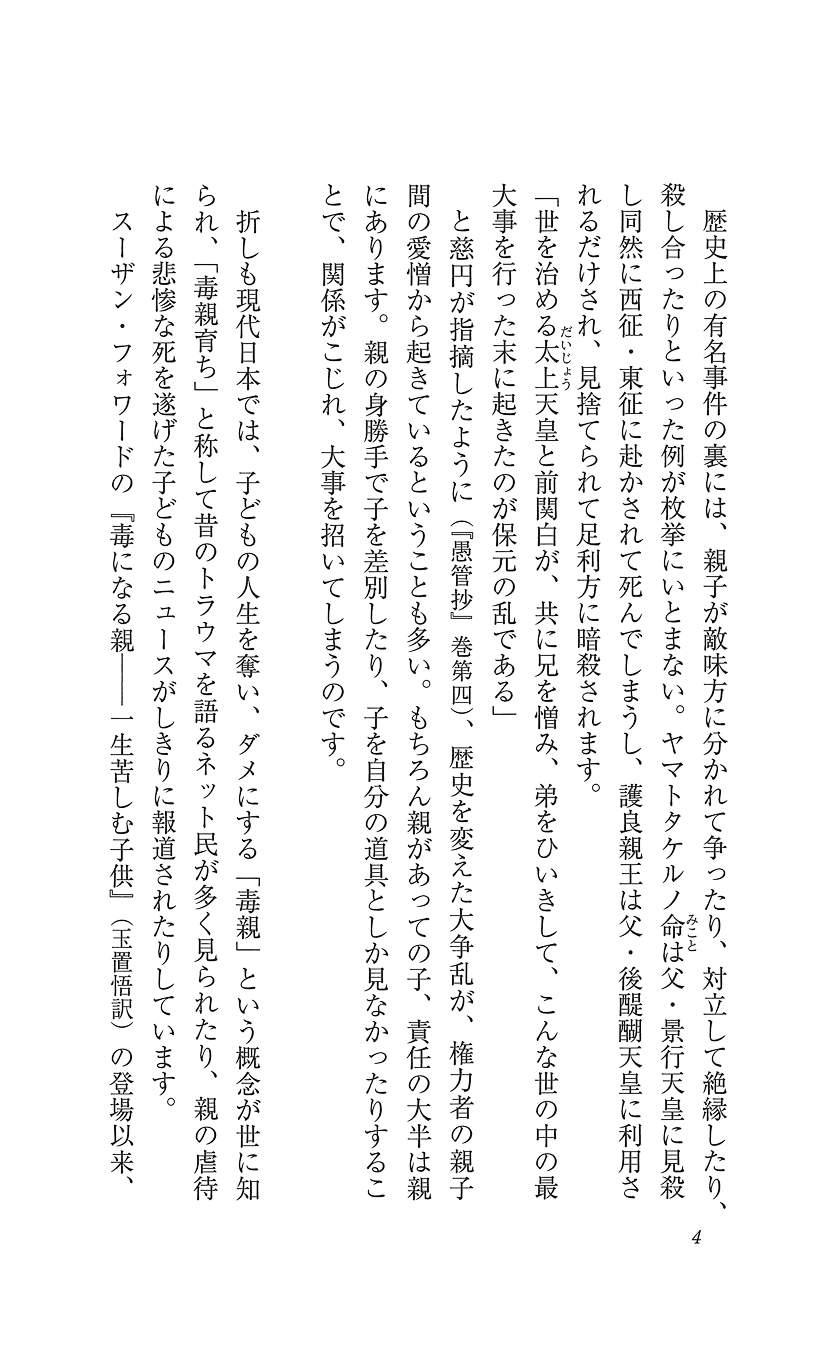 歴史上の有名事件の裏には、親子が敵味方に分かれて争ったり、対立して絶縁したり、
殺し合ったりといった例が枚挙にいとまない。ヤマトタケルノ命は父・景行天皇に見殺
みこと
し同然に西征・東征に赴かされて死んでしまうし、護良親王は父・後醍醐天皇に利用さ
れるだけされ、見捨てられて足利方に暗殺されます。
「世を治める太上天皇と前関白が、共に兄を憎み、弟をひいきして、こんな世の中の最
だいじょう
大事を行った末に起きたのが保元の乱である」
　と慈円が指摘したように（『愚管抄』巻第四）、歴史を変えた大争乱が、権力者の親子
間の愛憎から起きているということも多い。もちろん親があっての子、責任の大半は親
にあります。親の身勝手で子を差別したり、子を自分の道具としか見なかったりするこ
とで、関係がこじれ、大事を招いてしまうのです。
　折しも現代日本では、子どもの人生を奪い、ダメにする「毒親」という概念が世に知
られ、「毒親育ち」と称して昔のトラウマを語るネット民が多く見られたり、親の虐待
による悲惨な死を遂げた子どものニュースがしきりに報道されたりしています。
　スーザン・フォワードの『毒になる親――一生苦しむ子供』（玉置悟訳）の登場以来、
4